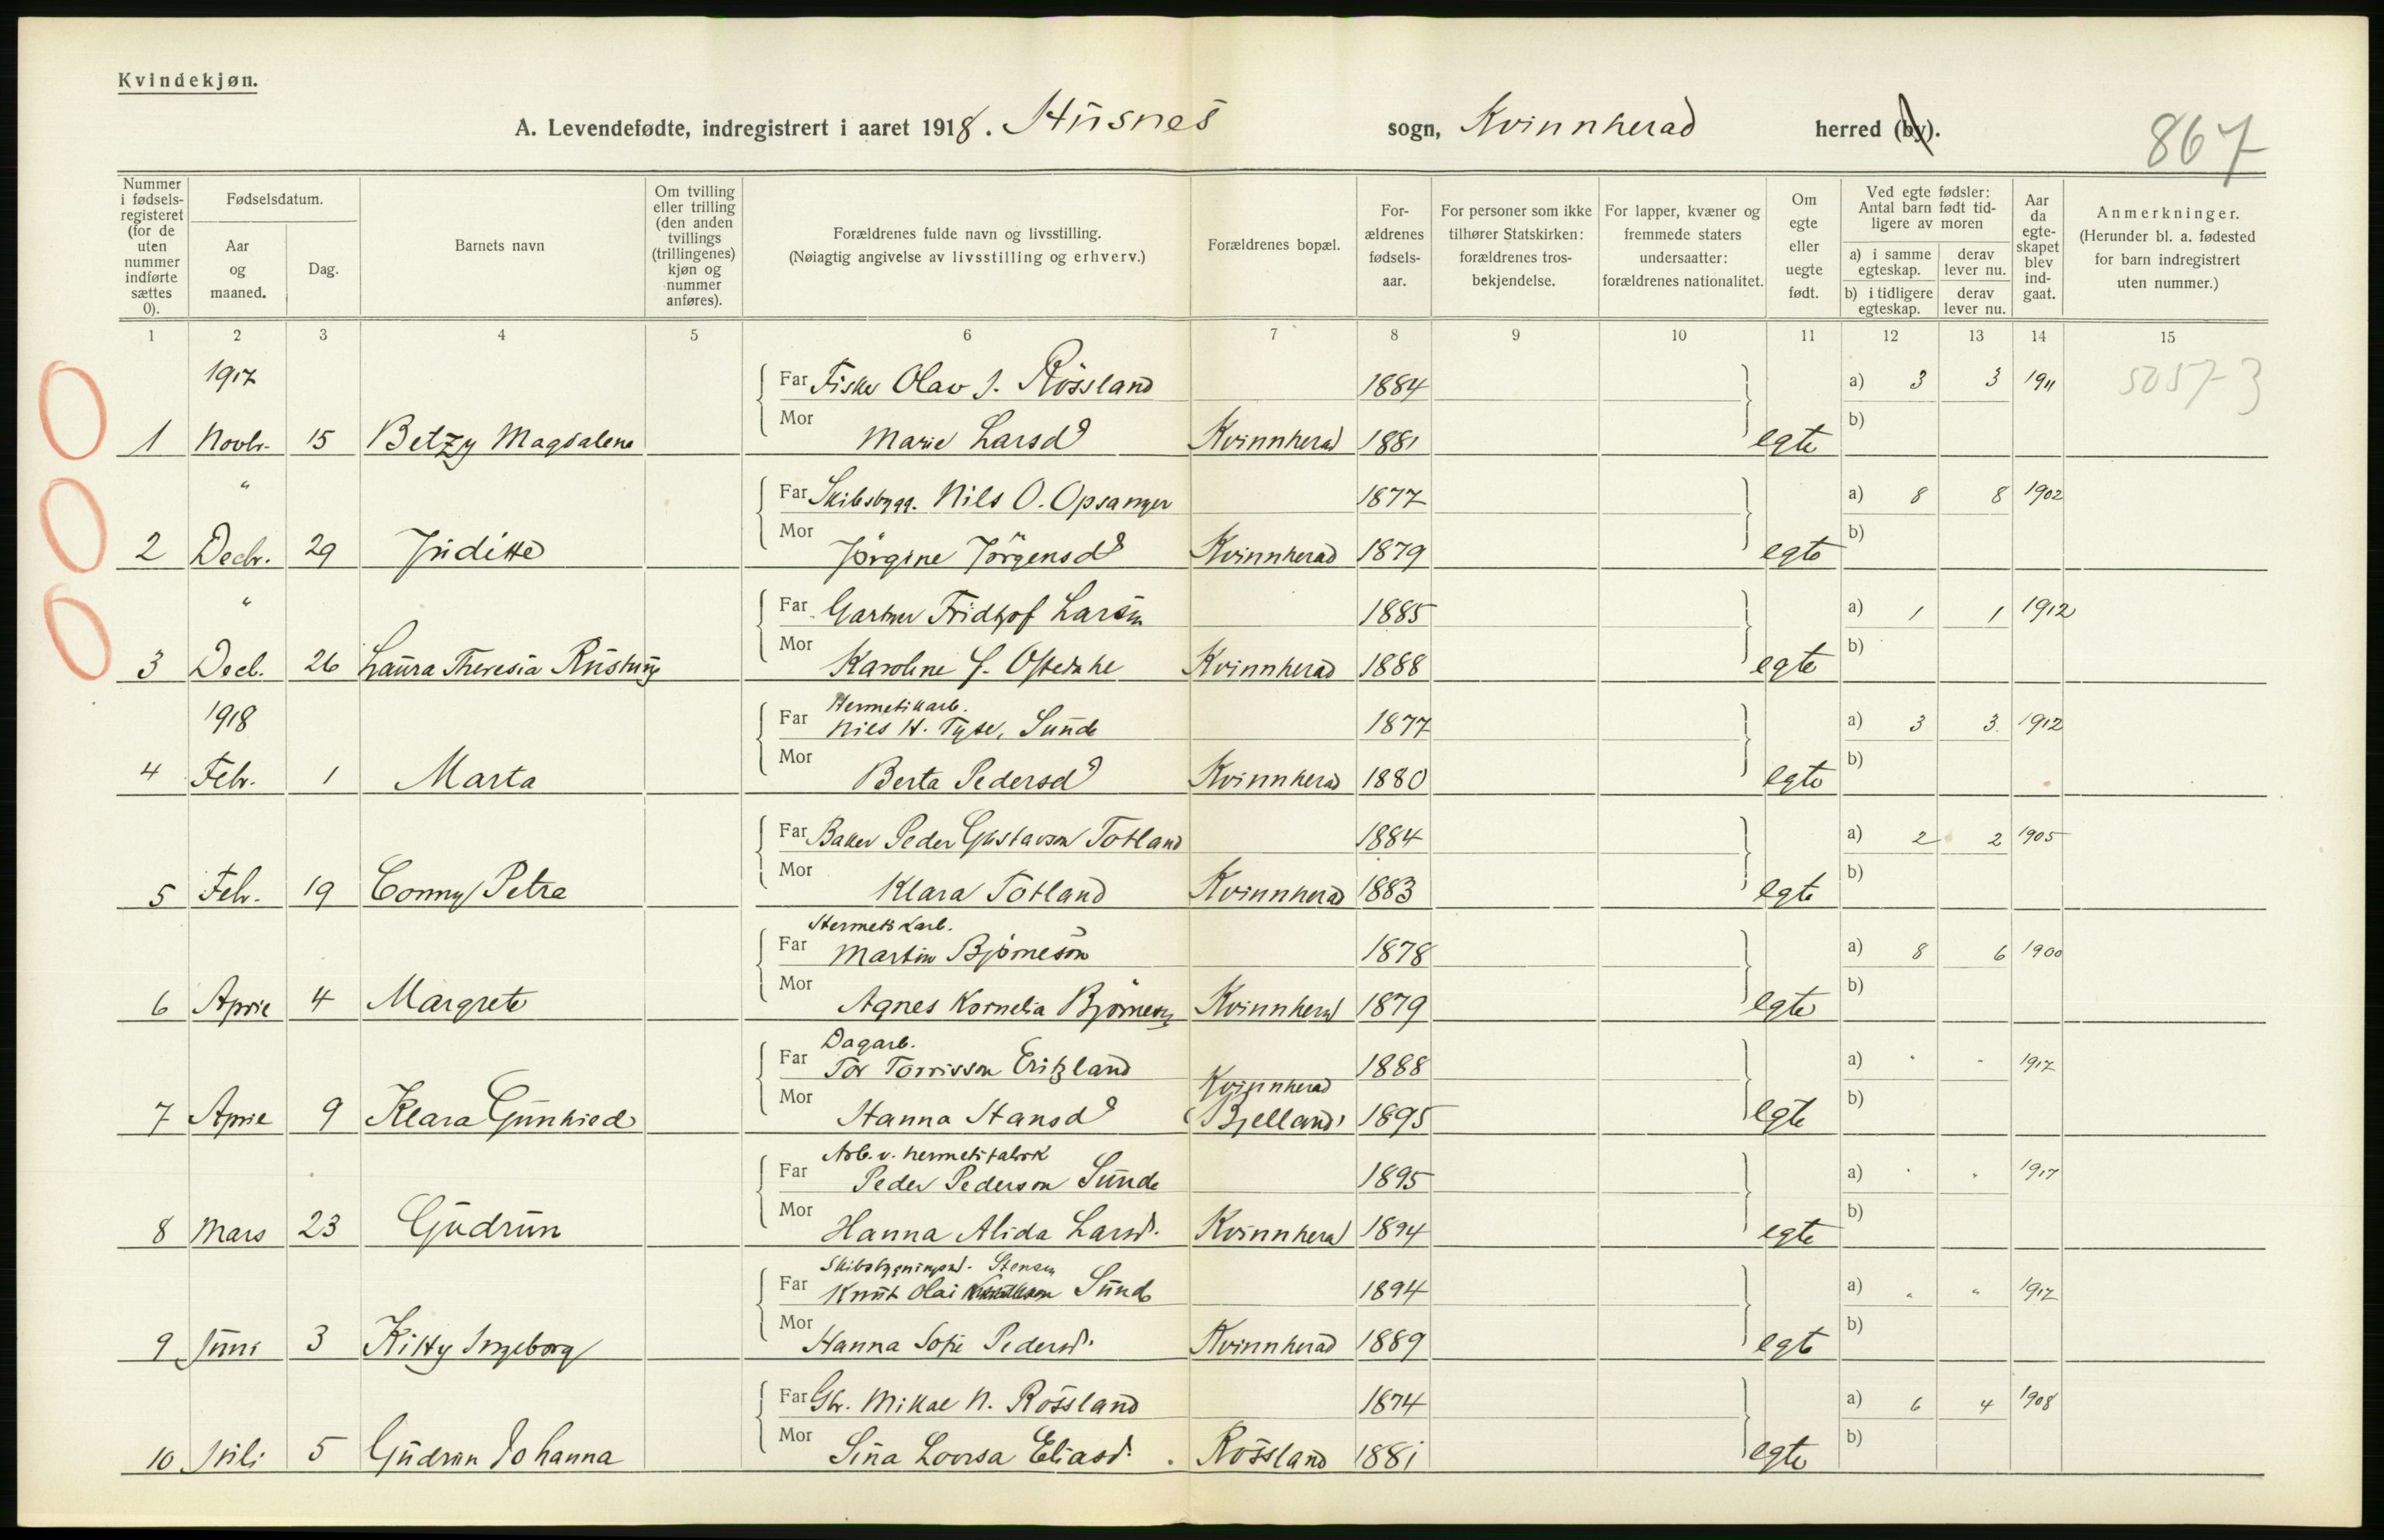 Kvindekjøn.
A. Levendefødte, indregistrert i aaret 1918. Husnes sogn, Kvinnherad herred (by).
867
Nummer i fødsels-registeret (for de uten nummer indførte sættes 0).
Fødselsdatum.
Aar og maaned.
Dag.
Barnets navn
Om tvilling eller trilling (den anden tvillings (trillingenes) kjøn og nummer anføres).
Forældrenes fulde navn og livsstilling.
(Nøiagtig angivelse av livsstilling og erhverv.)
Forældrenes bopæl.
For-ældrenes fødsels-aar.
For personer som ikke tilhører Statskirken: forældrenes tros-bekjendelse.
For lapper, kvæner og fremmede staters undersaatter: forældrenes nationalitet.
Om egte eller uegte født.
Ved egte fødsler: Antal barn født tid-ligere av moren
a) i samme egteskap.
derav lever nu.
b) i tidligere egteskap.
derav lever nu.
Aar da egte-skapet blev ind-gaat.
Anmerkninger.
(Herunder bl. a. fødested for barn indregistrert uten nummer.)
1 2 3 4 5 6 7 8 9 10 11 12 13 14 15
1917 Far Fisker Olav J. Rössland 1884 a) 3 3 1911 5057-3
1 Novbr. 15 Betzy Magdalena Mor Marie Larsd Kvinnherad 1881 egte b)
" Far Skibsbygg. Nils O. Opsanger 1877 a) 8 8 1902
2 Decbr. 29 Juditte Mor Jörgine Jörgensd Kvinnherad 1879 egte b)
" Far Gartner Fridtjof Larsen 1885 a) 1 1 1912
3 Decb. 26 Laura Theresia Mor Karoline Kvinnherad 1888 egte b)
1918 Hermetikarb.
Far Nils H. Tyse, Sunde 1877 a) 3 3 1912
4 Febr. 1 Marta Mor Berta Pedersd Kvinnherad 1880 egte b)
Far Baker Peder Gustavson Totland 1884 a) 2 2 1905
5 Febr. 19 Conny Petra Mor Klara Totland Kvinnherad 1883 egte b)
Hermetikarb.
Far Martin Björneson 1878 a) 8 6 1900
6 April 4 Margrete Mor Agnes Kornelia Björnesen Kvinnherad 1879 egte b)
Dagarb.
Far Tor Torrisson Eritzland 1888 a) " " 1917
Kvinnherad
7 April 9 Klara Gunhild Mor Hanna Hansd (Bjelland) 1895 egte b)
Arb. v. hermetikfabrik
Far Peder Pederson Sunde 1895 a) " " 1917
8 Mars 23 Gudrun Mor Hanna Alida Larsd. Kvinnherad 1894 egte b)
Stensen
Far Knut Olai Sunde 1894 a) " " 1917
9 Juni 3 Kitty Ingeborg Mor Hanna Sofie Pedersd. Kvinnherad 1889 egte b)
Far Gbr. Mikal N. Rössland 1874 a) 6 4 1908
10 Juli 5 Gudrun Johanna Mor Sina Lovisa Eliasd. Rössland 1881 egte b)